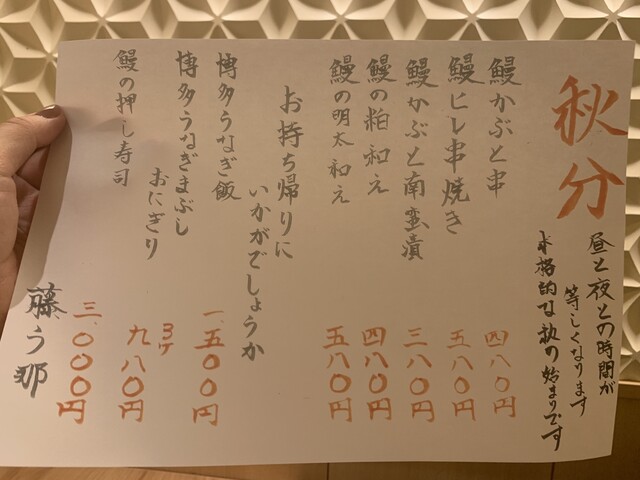 秋分
昼と夜との時間が
等しくなります
本格的な秋の始まりです
鰻かぶと串 四八〇円
鰻ヒレ串焼き 五八〇円
鰻かぶと南蛮漬 三八〇円
鰻の粕和え 四八〇円
鰻の明太和え 五八〇円
お持ち帰りに
いかがでしょうか
博多うなぎ飯 一、五〇〇円
博多うなぎまぶし
おにぎり 3ケ 九八〇円
鰻の押し寿司 三、〇〇〇円
藤う那